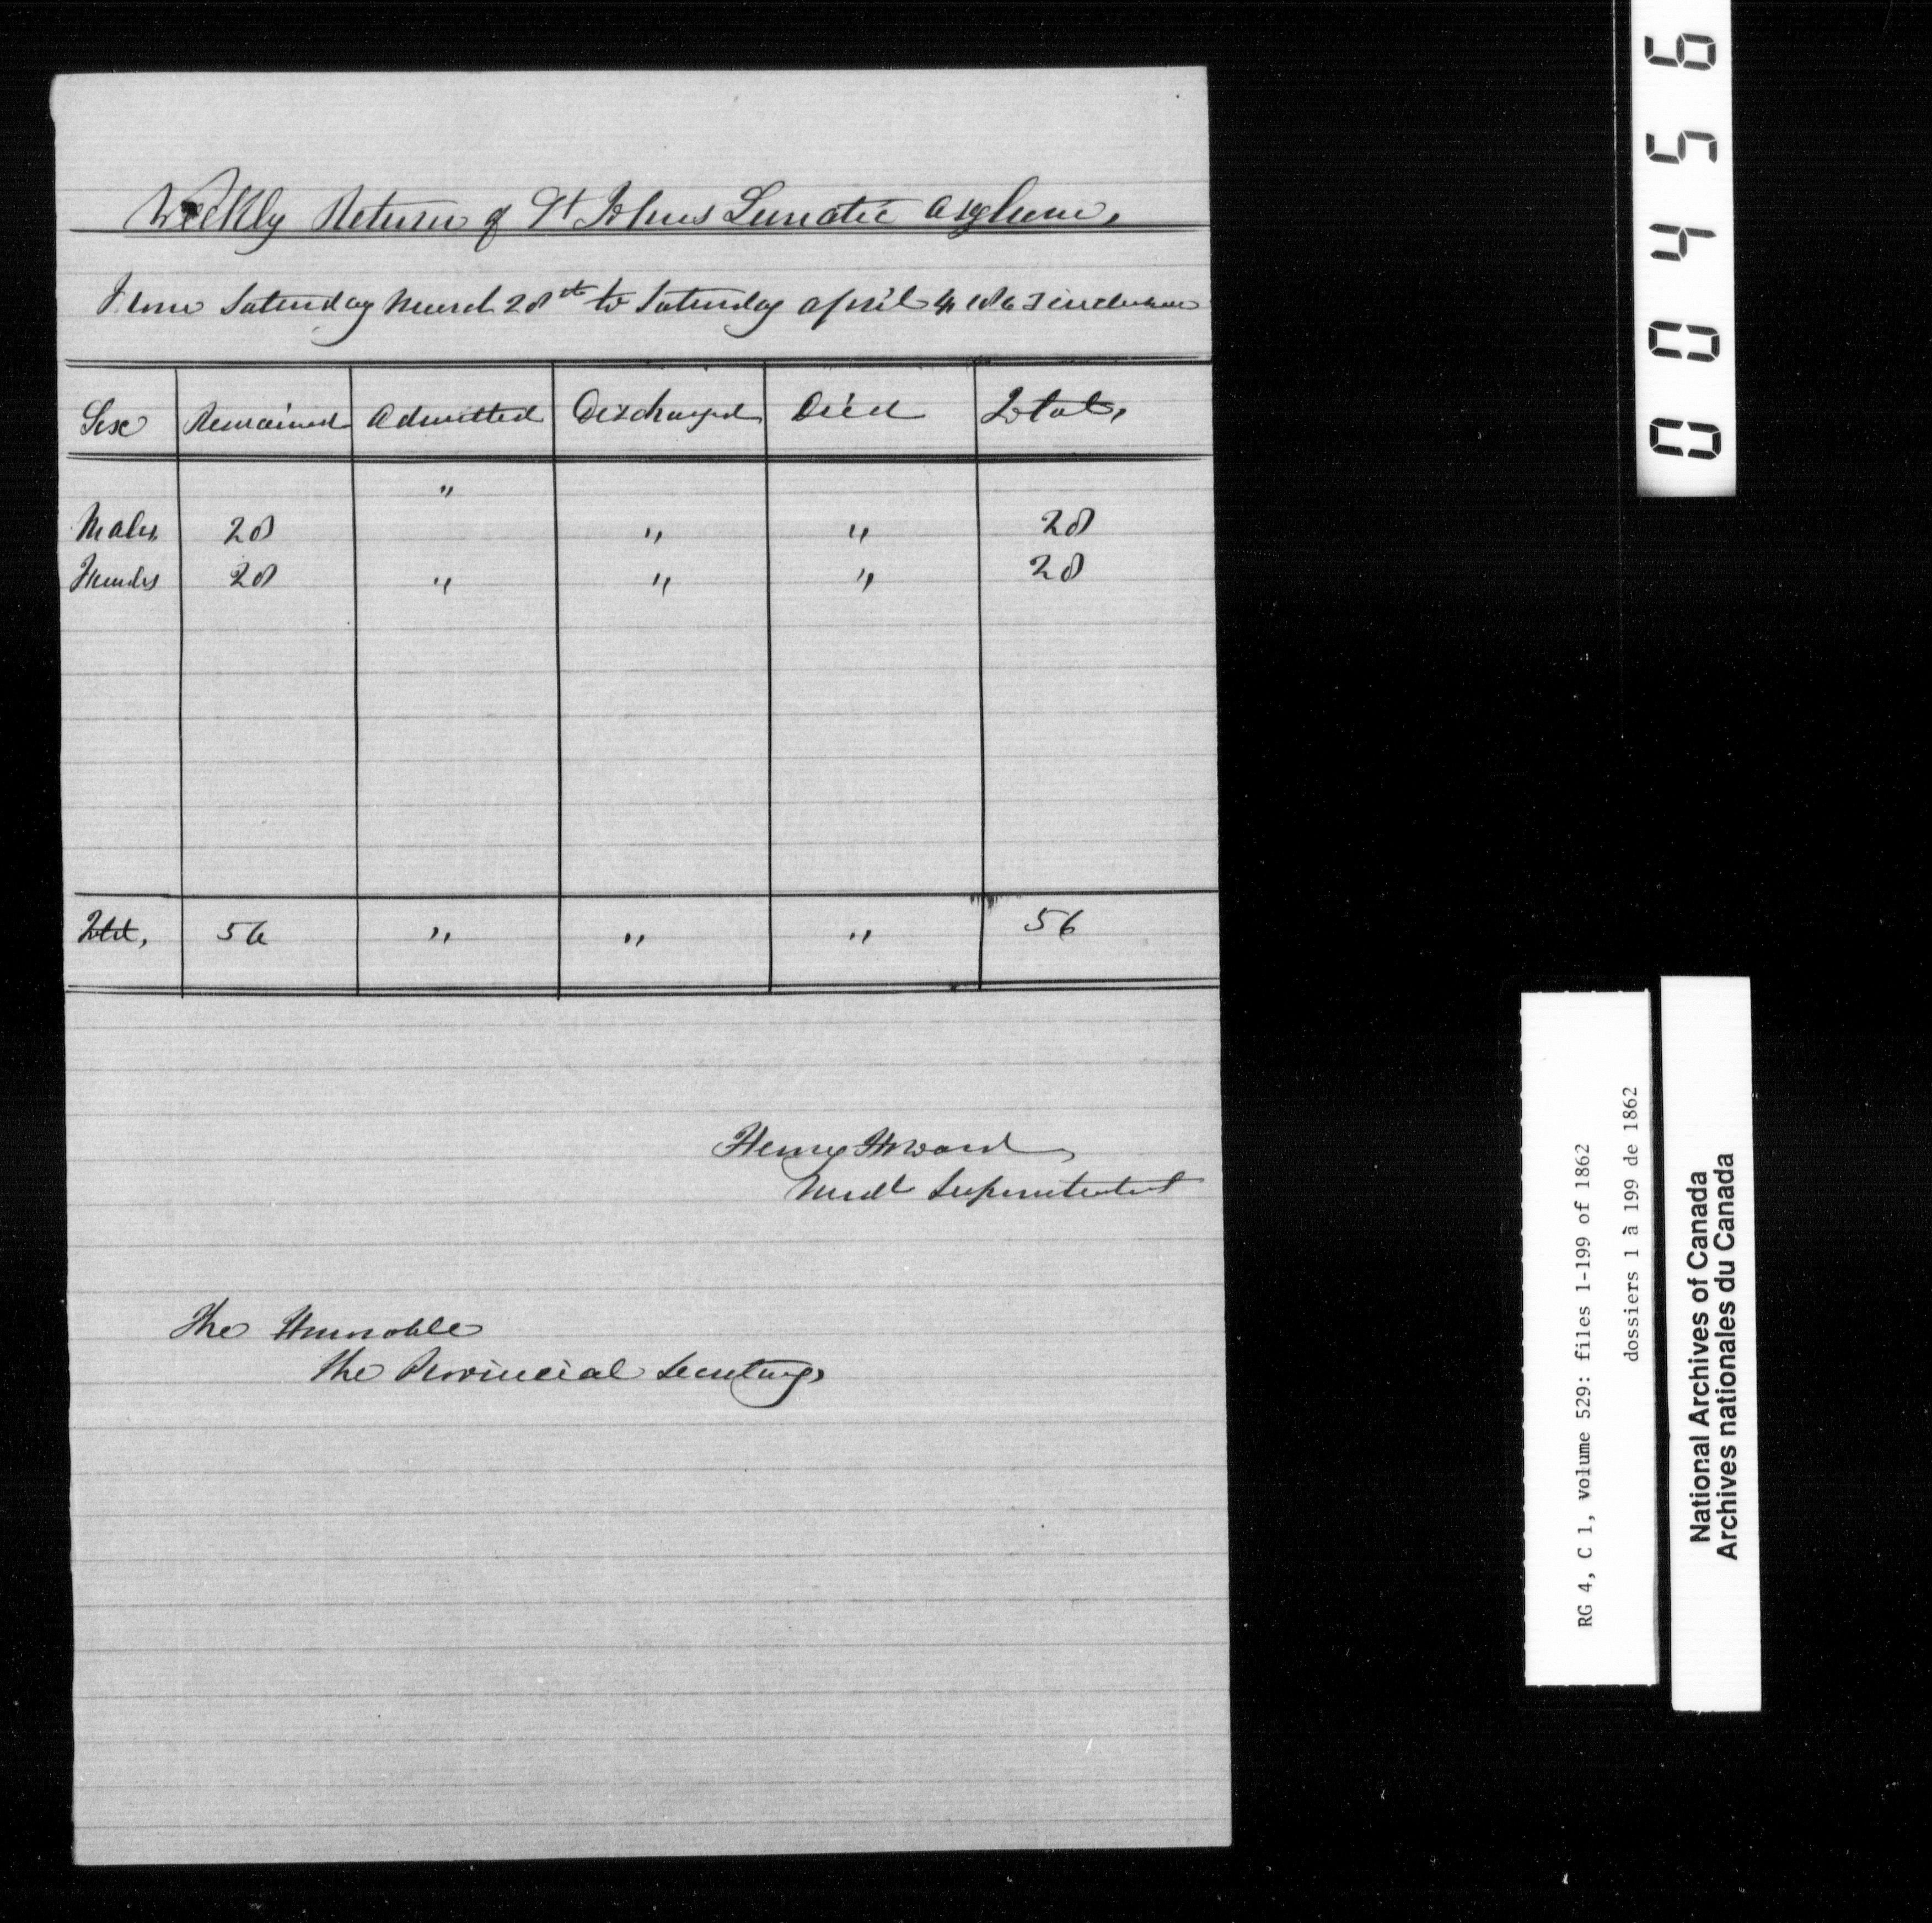 Weekly Return of St Johns Lunatic Asylum,
From Saturday March 28th to Saturday April 4 1863 inclusive
Sex Remained Admitted Discharged Died Total,
"
Males 28 " " 28
Females 28 " " " 28
Total, 56 " " " 56
Henry Howard
Medl Superintendent
The Honorable
the Provincial Secretary,
00456
RG 4, C 1, volume 529: files 1-199 of 1862
dossiers 1 à 199 de 1862
National Archives of Canada
Archives nationales du Canada